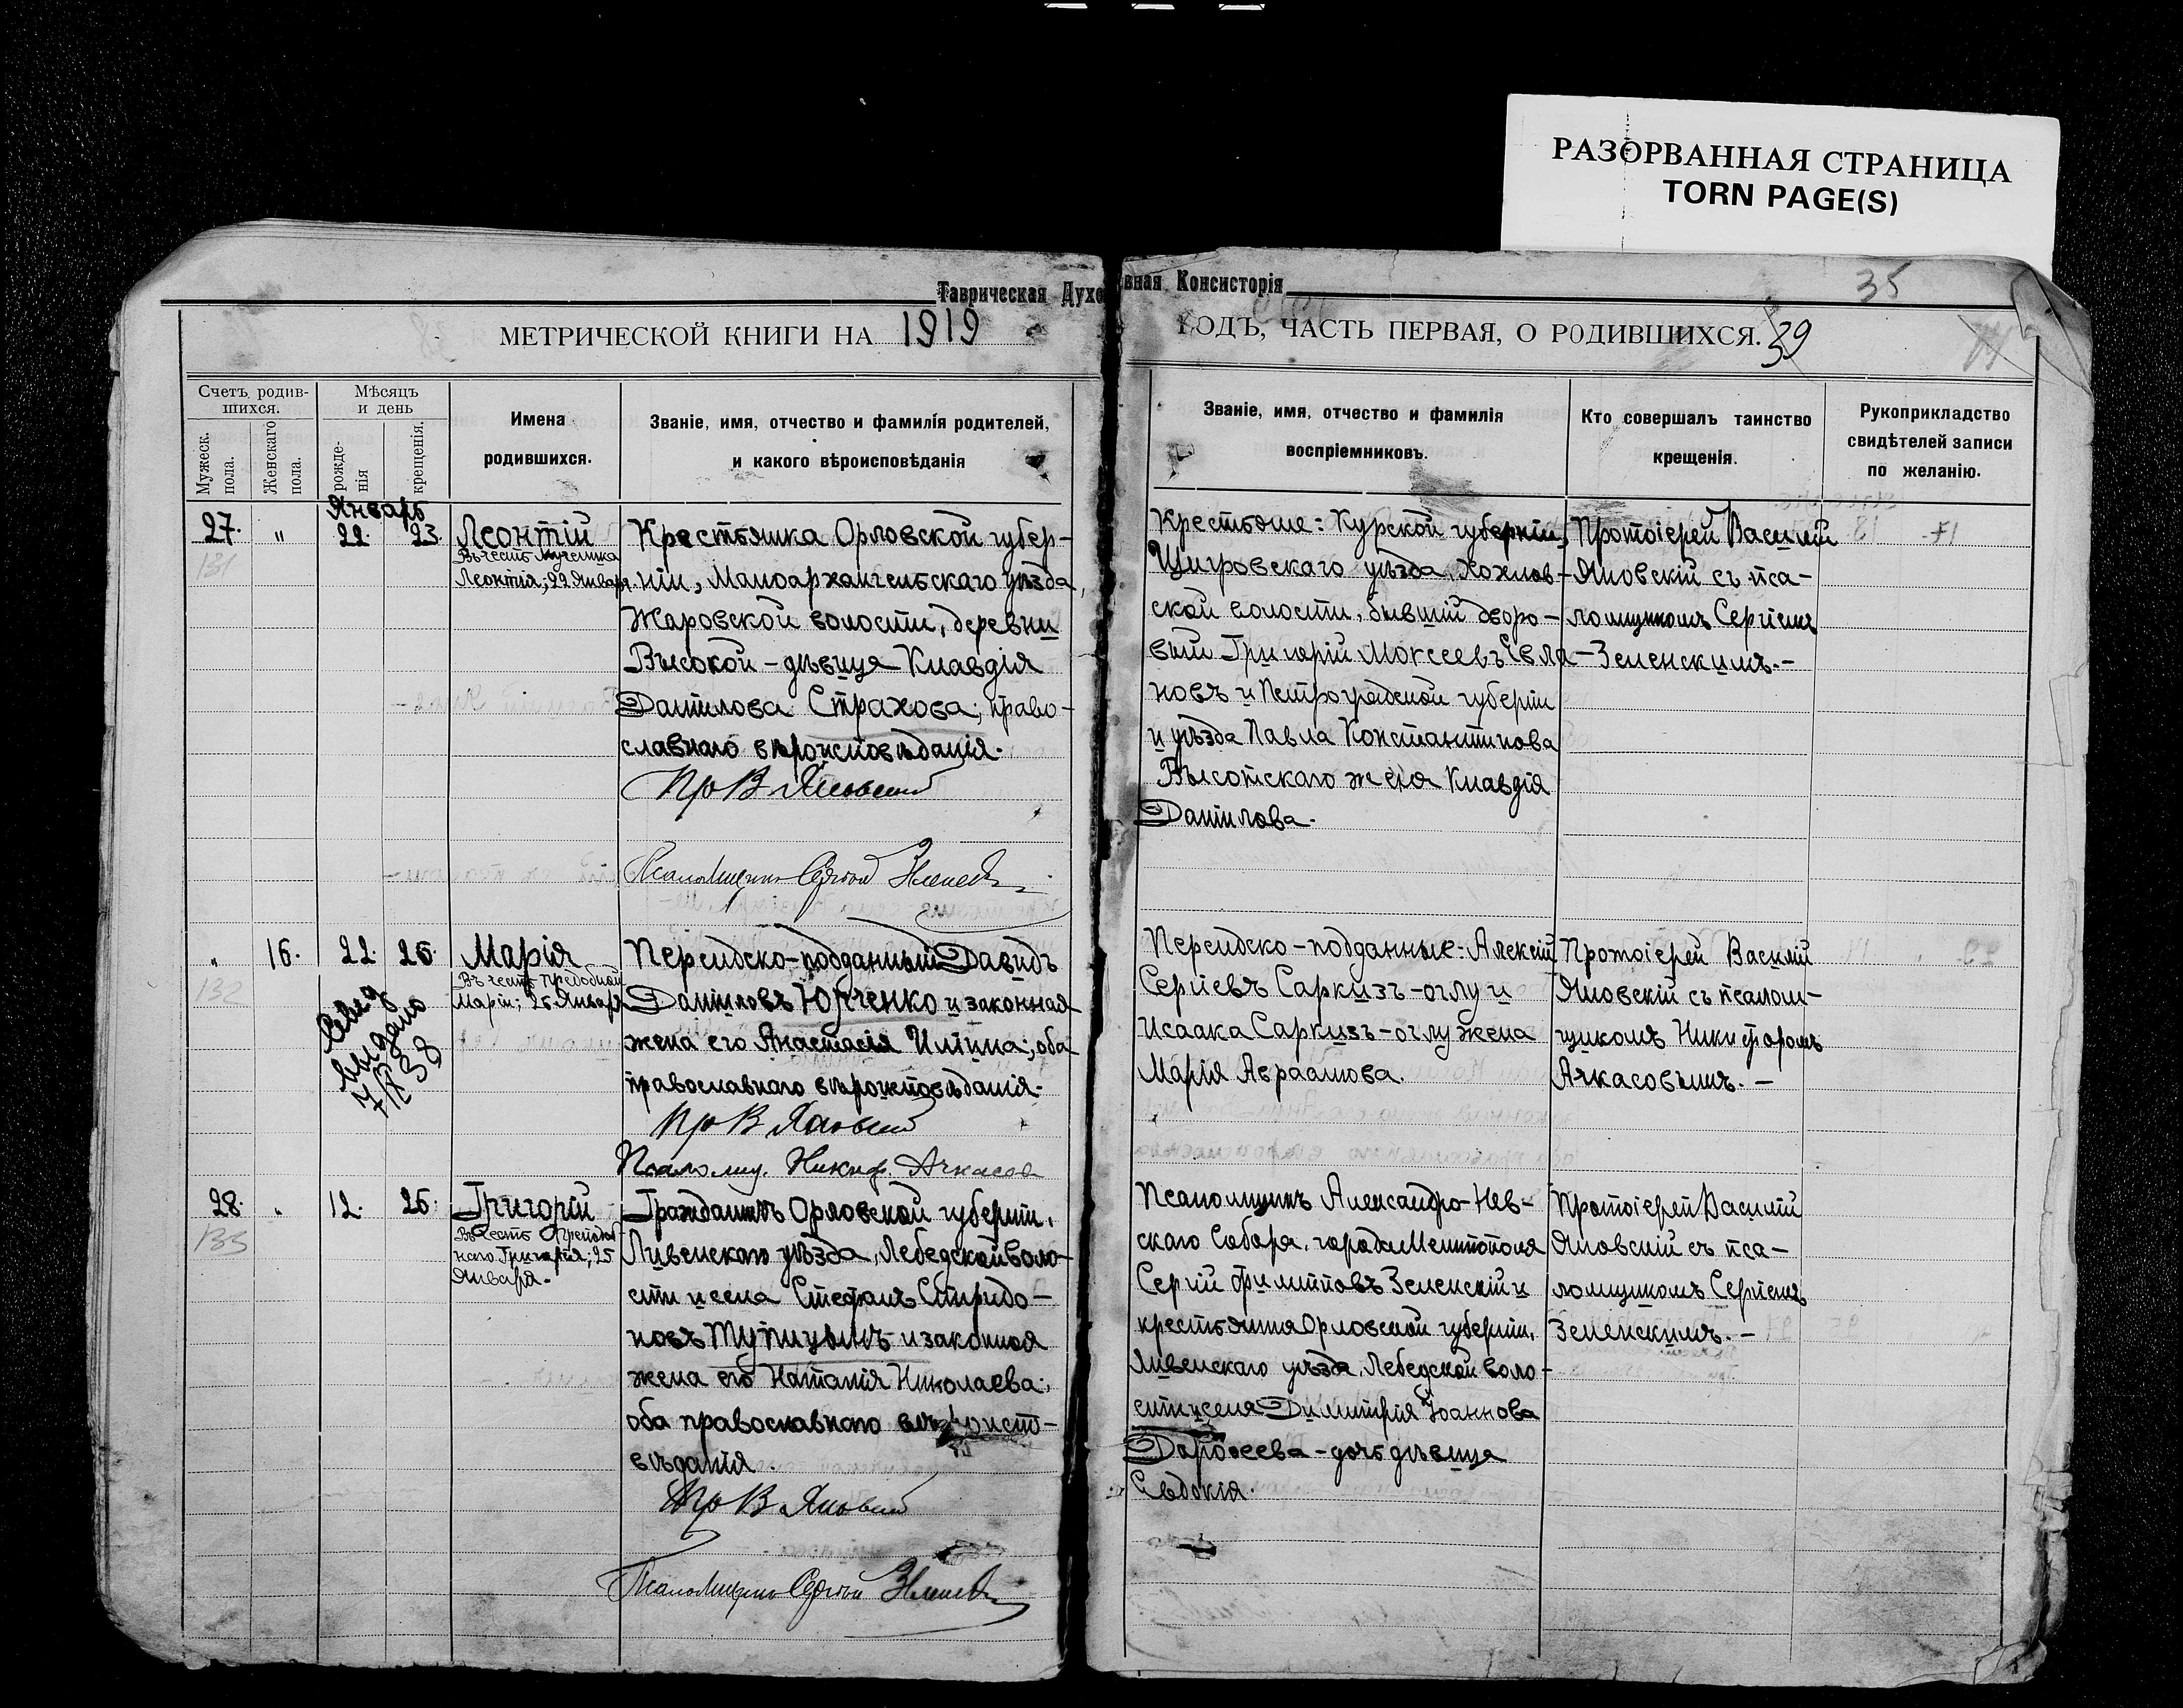 РАЗОРВАННАЯ СТРАНИЦА
TORN PAGE(S)
Таврическая Духо
вная Консисторія
35
МЕТРИЧЕСКОЙ КНИГИ НА 1919
ГОДЪ, ЧАСТЬ ПЕРВАЯ, О РОДИВШИХСЯ. 39
Счетъ родив-
шихся.
Мужеск.
пола.
Женскаго
пола.
Мѣсяцъ
и день
рожде-
нія
крещенія.
Имена
родившихся.
Званіе, имя, отчество и фамилія родителей,
и какого вѣроисповѣданія
Званіе, имя, отчество и фамилія
воспріемниковъ.
Кто совершалъ таинство
крещенія.
Рукоприкладство
свидѣтелей записи
по желанію.
Январь
27. " 22. 23.
131
Леонтій
Въ честь мученика
Леонтія; 22 Января.
Крестьянка Орловской губер-
ніи, Малоархангельскаго уѣзда,
Жаровской волости, деревни
Высокой - дѣвица Клавдія
Даніилова Страхова; право-
славнаго вѣроисповѣданія.
Пр В Яновскій
Псаломщикъ Сергій Зеленскій
Крестьяне: Курской губерніи,
Щигровскаго уѣзда, Хохлов-
ской волости, бывшій дворо-
вый Григорій Моѵсеевъ Евла-
новъ и Петроградской губерніи
и уѣзда Павла Константинова
Высотскаго жена Клавдія
Даніилова.
Протоіерей Василій
Яновскій съ пса-
ломщикомъ Сергіемъ
Зеленскимъ. -
" 16. 22. 25.
132
Свид
выдано
7/IX 38
Марія
Въ честь преподобной
Маріи; 26 Января
Персидско-подданный Давидъ
Даніиловъ Юрченко и законная
жена его Анастасія Иліина; оба
православнаго вѣроисповѣданія.
Пр В Яновскій
Псаломщ. Никиф. Ачкасов
Персидско-подданные: Алексій
Сергіевъ Саркизъ-оглу и
Исаака Саркизъ-оглу жена
Марія Авраамова.
Протоіерей Василій
Яновскій съ псалом-
щикомъ Никифоромъ
Ачкасовымъ. -
28. " 12. 25.
133
Григорій
Въ честь Преподоб-
наго Григорія; 25
Января.
Гражданинъ Орловской губерніи,
Ливенскаго уѣзда, Лебедской воло-
сти и села Стефанъ Спиридо-
новъ Тупицынъ и законная
жена его Наталія Николаева;
оба православнаго вѣроиспо-
вѣданія.
Пр В Яновскій
Псаломщикъ Сергій Зеленскій
Псаломщикъ Александро-Нев-
скаго Собора, города Мелитополя
Сергій Филипповъ Зеленскій и
крестьянина Орловской губерніи,
Ливенскаго уѣзда, Лебедской воло-
сти и села Димитрія Іоаннова
Дороѳеева - дочь дѣвица
Евдокія.
Протоіерей Василій
Яновскій съ пса-
ломщикомъ Сергіемъ
Зеленскимъ. -